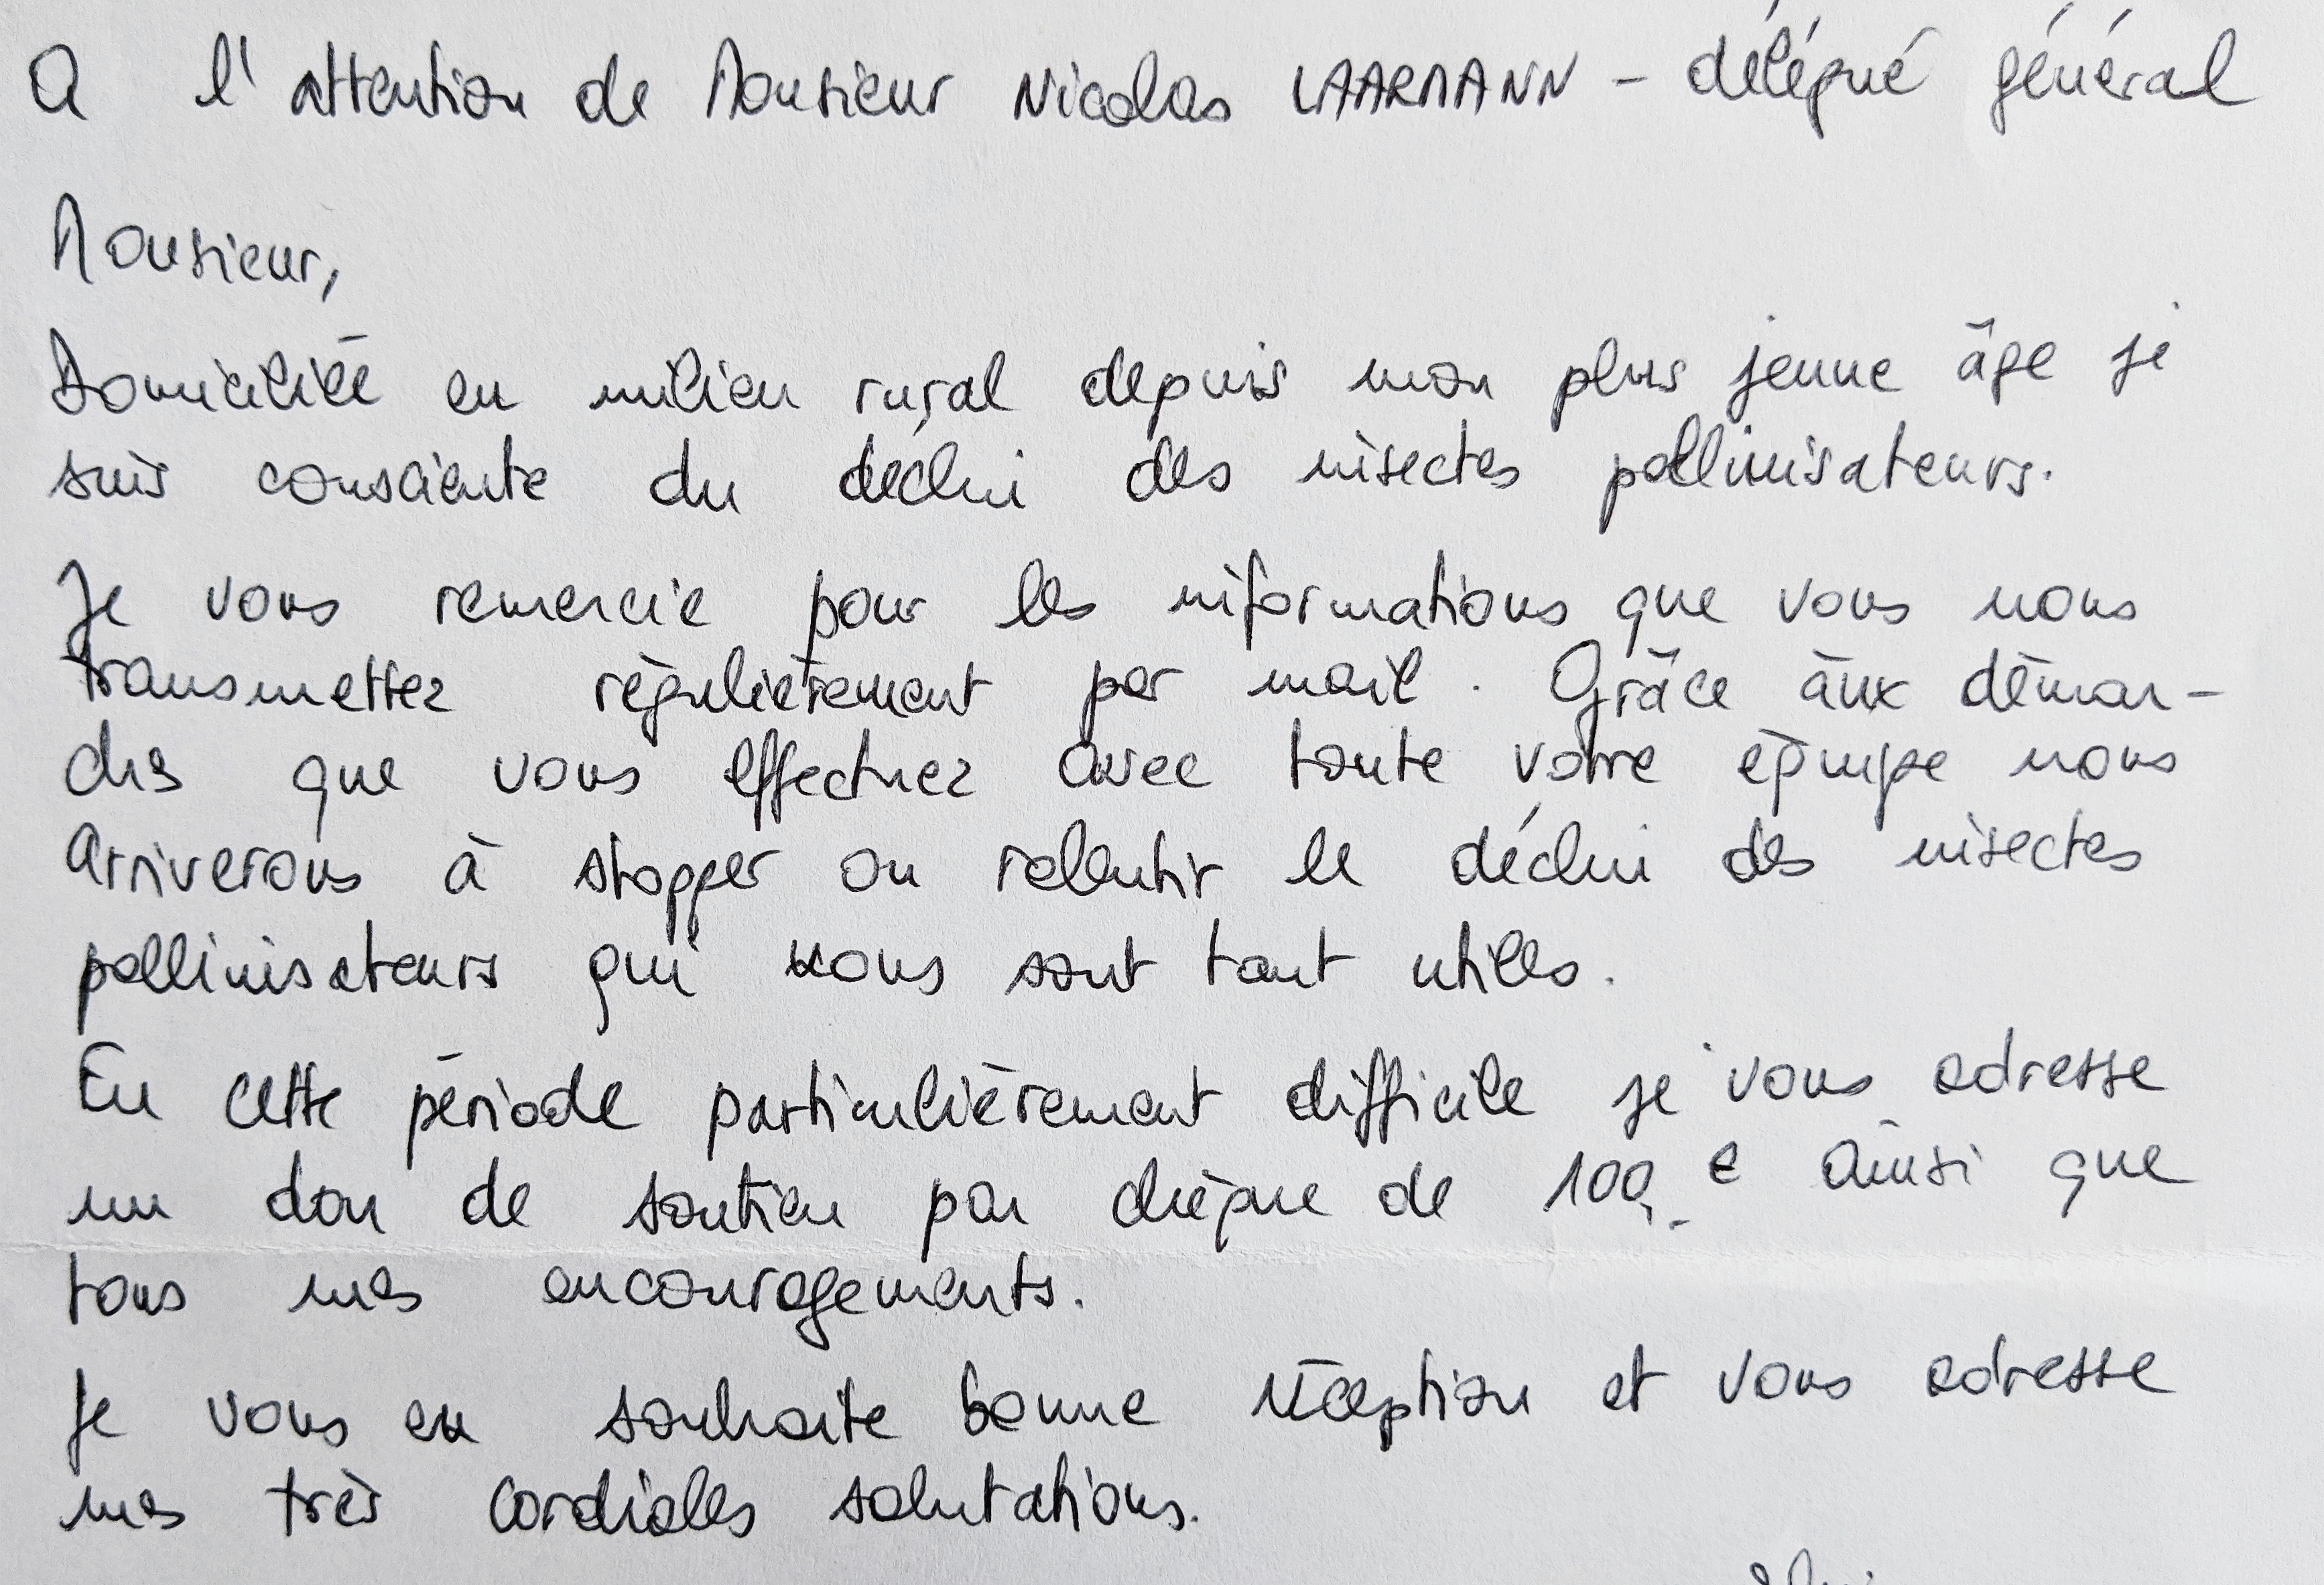 A l'attention de Monsieur Nicolas LAARMANN - délégué général
Monsieur,
Domiciliée en milieu rural depuis mon plus jeune âge je
suis consciente du déclin des insectes pollinisateurs.
Je vous remercie pour les informations que vous nous
transmettez régulièrement par mail. Grâce aux démar-
ches que vous effectuez avec toute votre équipe nous
arriverons à stopper ou ralentir le déclin des insectes
pollinisateurs qui nous sont tant utiles.
En cette période particulièrement difficile je vous adresse
un don de soutien par chèque de 100,- € ainsi que
tous mes encouragements.
Je vous en souhaite bonne réception et vous adresse
mes très cordiales salutations.